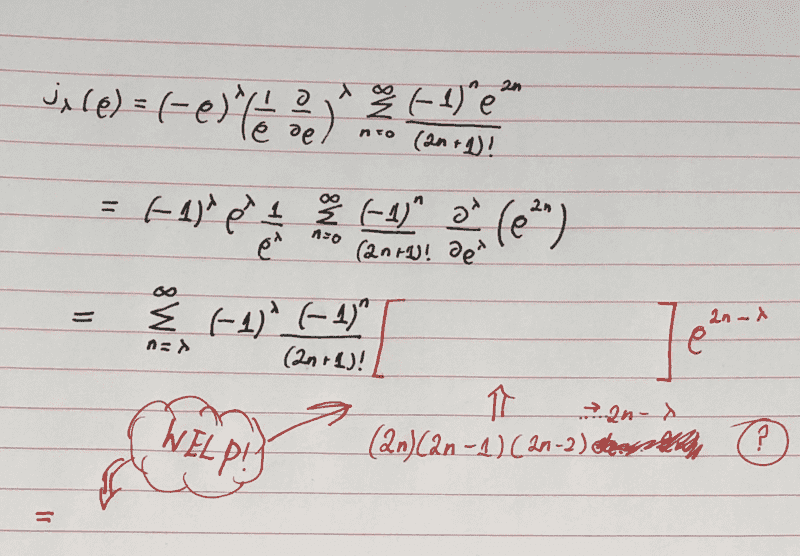 j_λ(ρ) = (-ρ)^λ (1/ρ ∂/∂ρ)^λ ∑_{n=0}^{∞} (-1)^n ρ^{2n} / (2n+1)!
= (-1)^λ ρ^λ 1/ρ^λ ∑_{n=0}^{∞} (-1)^n / (2n+1)! ∂^λ/∂ρ^λ (ρ^{2n})
= ∑_{n=λ}^{∞} (-1)^λ (-1)^n / (2n+1)! [ ] ρ^{2n-λ}
HELP! ⇑ (2n)(2n-1)(2n-2) ...→ 2n-λ ?
=